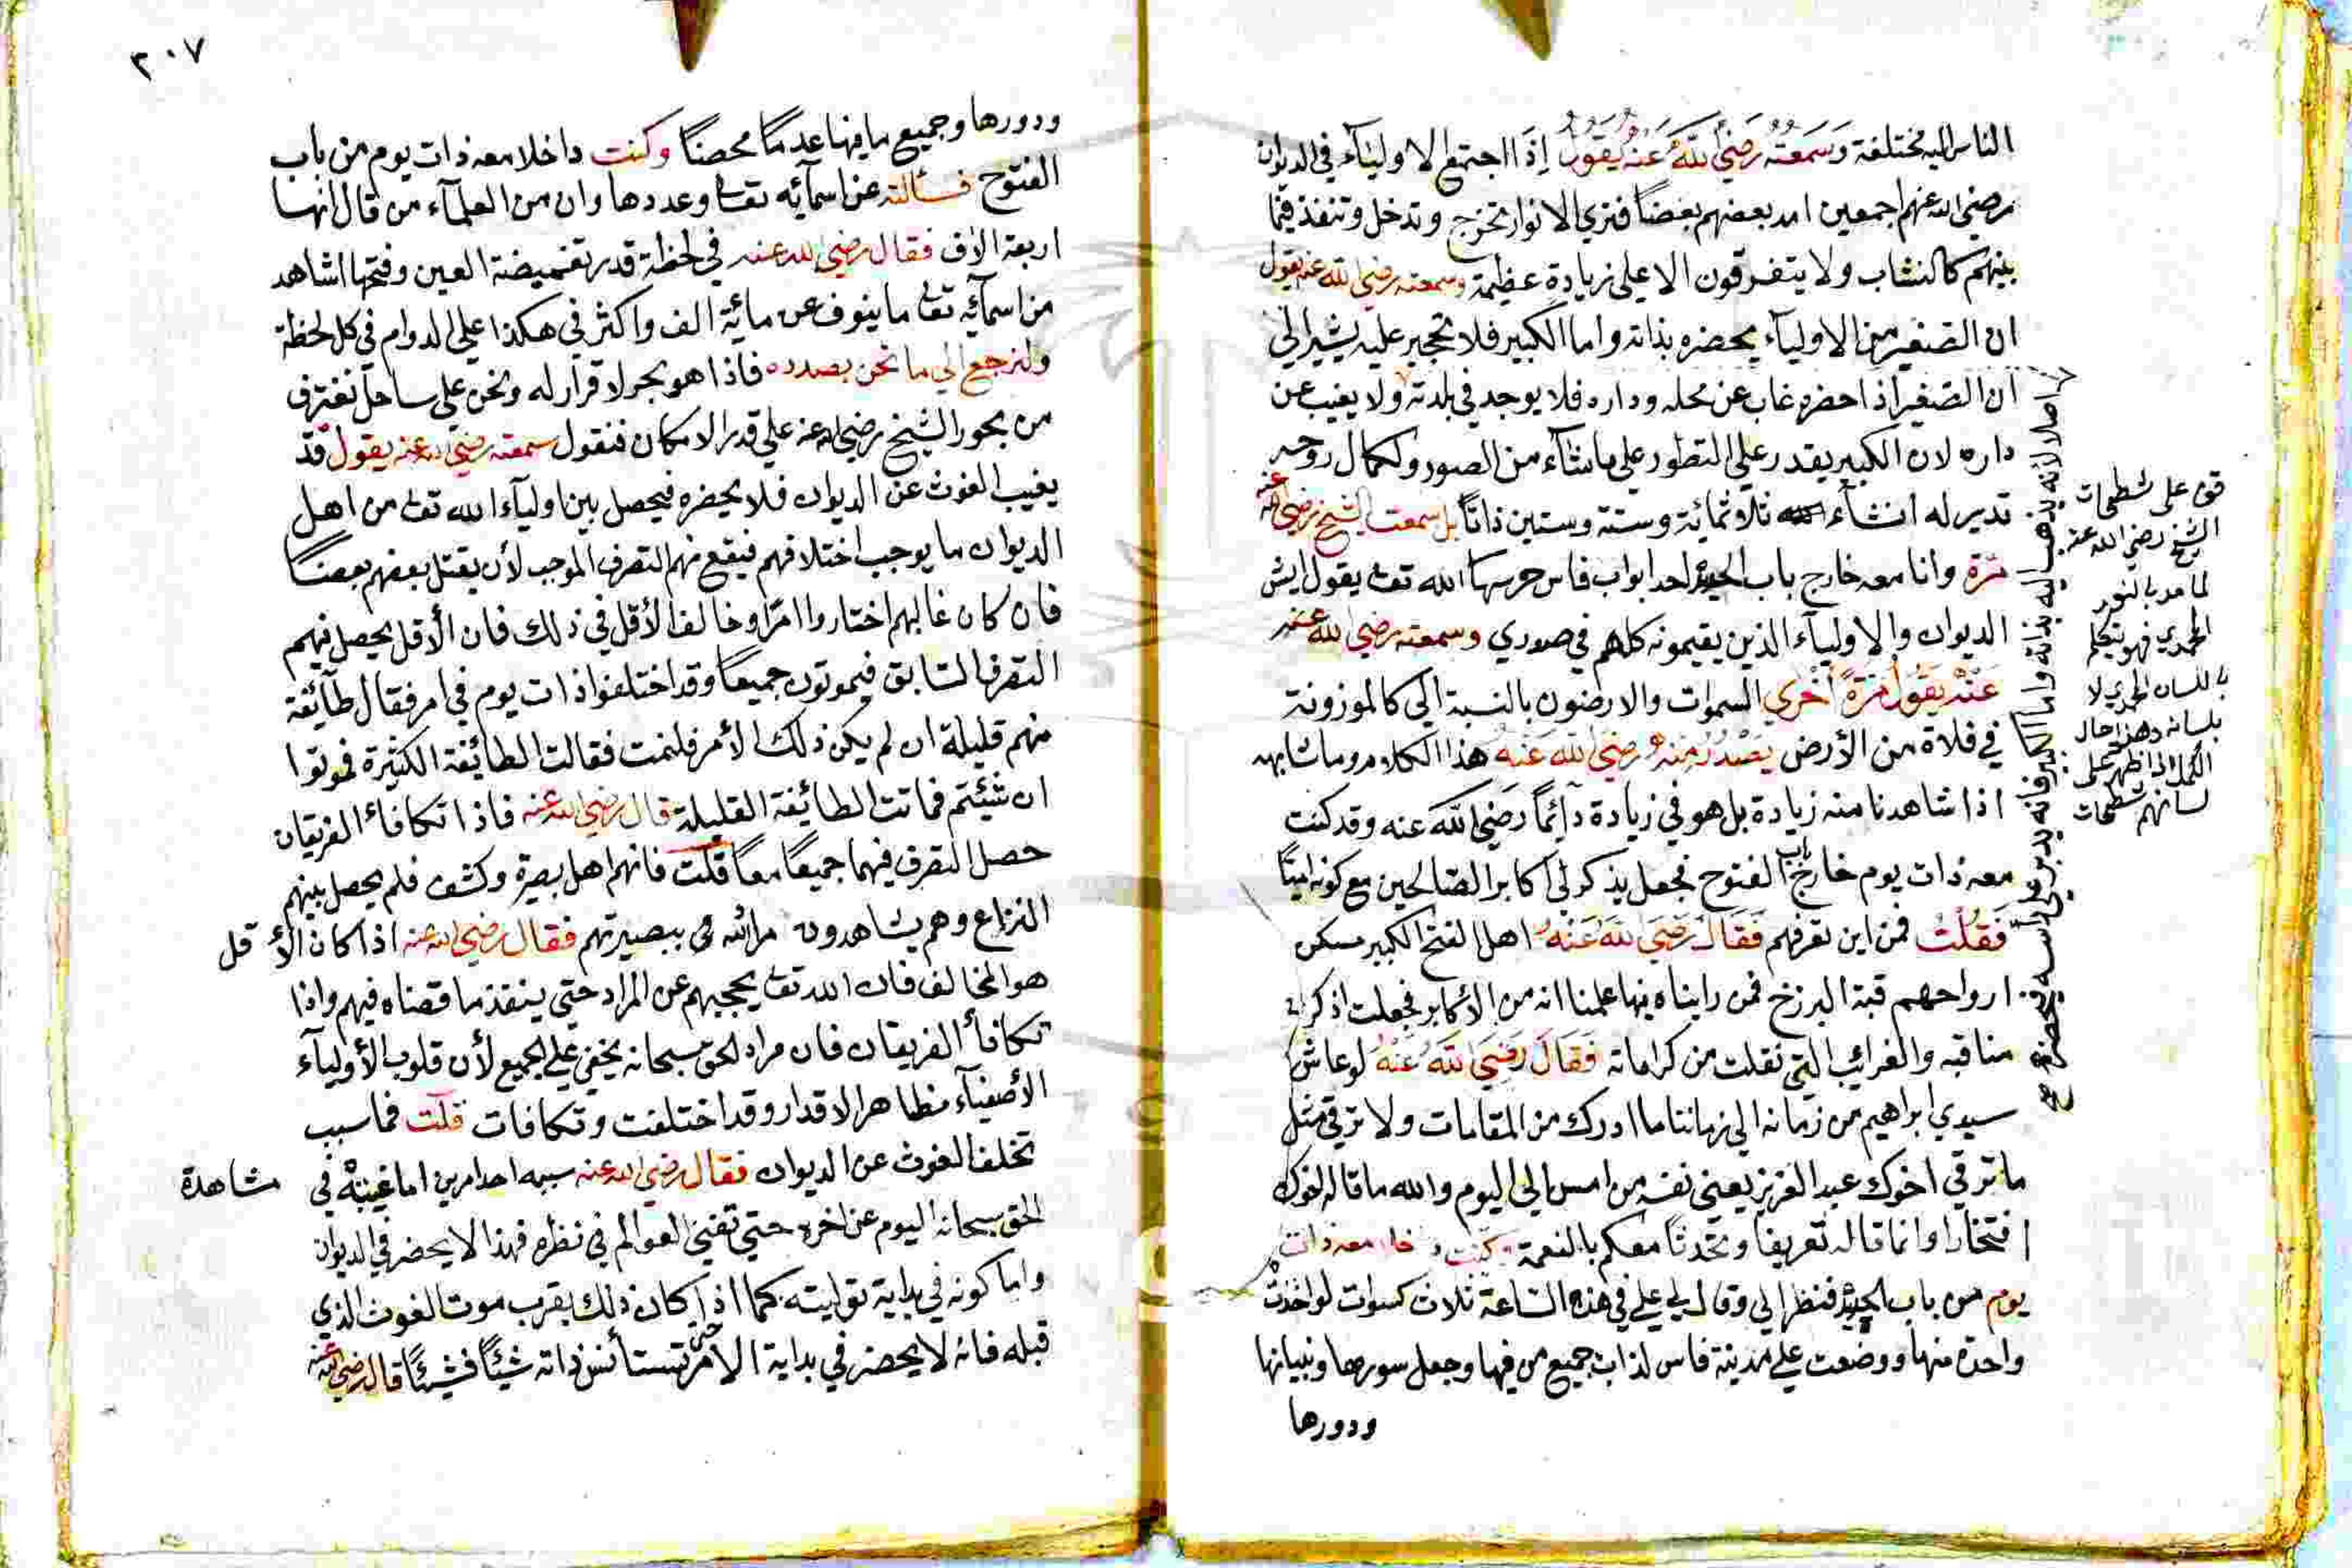 الناس اليه مختلفة وَسَمعتُه رَضيَ اللهُ عَنهُ يَقُولُ إذَا اجتمع الاوليآء في الديوان
رضي الله عنهم اجمعين امد بعضهم بعضًا فتري الانوار تخرج وتدخل وتنفذ فيما
بينهم كالنشاب ولا يتفرقون الا علي زيادة عظيمة وسمعته رضي الله عنه يقول
ان الصغير من الاوليآء يحضره بذاته واما الكبير فلا تحجير عليه يشير الي
ان الصغير اذا حضره غاب عن محله وداره فلا يوجد في بلدته ولا يغيب عن
داره لان الكبير يقدر علي التطور علي ما شآء من الصور ولكمال روحه
تدير له ان شآء ثلاثمائة وستة وستين ذاتًا بل سمعت الشيخ رضي الله عنه
مَرّة وانا معه خارج باب الحبيسة احد ابواب فاس حرسها الله تعا يقول ايش
الديوان والاوليآء الذين يقيمونه كلهم في صدري وسمعته رضي الله عنه
عَنهُ يَقُولُ مَرَةً أخرَي السموات والارضون بالنسبة الي كالموزونة
في فلاة من الأرض يَصْدُرُ مِنهُ رضيَ اللهُ عَنهُ هذا الكلام وما شابهه
اذا شاهدنا منه زيادة بل هو في زيادة دآئمًا رَضي اللهُ عنه وقد كنت
معه ذات يوم خارج باب الفتوح فجعل يذكر لي اكابر الصالحين مع كونه اميًّا
فَقُلْتُ فمن اين تعرفهم فَقَالَ رَضَيَ اللهُ عَنهُ اهل الفتح الكبير مسكن
ارواحهم قبة البرزخ فمن رايناه فيها علمنا انه من الأكابر فجعلت اذكر له
مناقبه والغرائب التي نقلت من كراماته فَقَالَ رَضيَ اللهُ عَنْهُ لو عاش
سيدي ابراهيم من زمانه الي زماننا ما ادرك من المقامات ولا ترقي مثل
ما ترقي اخوك عبد العزيز يعني نفسه من امس الي اليوم والله ما قاله اخوك
افتخارا وانما قاله تعريفا وتحدثا معكم بالنعمة وكنت داخلا معه ذات
يوم من باب الحبيسة فنظر الي وقال لي علي في هذه الساعة ثلاث كسوات لو اخذت
واحدة منها ووضعت علي مدينة فاس لذاب جميع من فيها وجعل سورها وبنيانها
ودورها
اصلا لانه يذهب اليه بذاته واما الكبير فانه يدبر علي راسه فيحضره صح
قف على شطحات
الشيخ رضي الله عنه
لما مد بالنور
المحمدي فهو يتكلم
باللسان المحمدي لا
بلسانه وهذا حال
الكمل اذا ظهر على
لسانهم شطحات
٢٠٧
ودورها وجميع ما فيها عدمًا محضًا وكنت داخلا معه ذات يوم من باب
الفتوح فسألته عن اسمآئه تعا وعددها وان من العلمآء من قال انها
اربعة الاف فقال رضي الله عنه في لحظة قدر تغميضة العين وفتحها اشاهد
من اسمآئه تعا ما ينوف عن مائة الف واكثر في هكذا علي الدوام في كل لحظة
ولنرجع الي ما نحن بصدده فاذا هو بحر لا قرار له ونحن علي ساحل نغترف
من بحور الشيخ رضي الله عنه علي قدر الامكان فنقول سمعته رضي الله عنه يقول قد
يغيب الغوث عن الديوان فلا يحضره فيحصل بين اوليآء الله تعا من اهل
الديوان ما يوجب اختلافهم فيقع منهم التصرف الموجب لأن يقتل بعضهم بعضًا
فان كان غالبهم اختاروا امرًا وخالف الأقل في ذلك فان الأقل يحصل فيهم
التصرف السابق فيموتون جميعًا وقد اختلفوا ذات يوم في امر فقال طآئفة
منهم قليلة ان لم يكن ذلك الأمر فلنمت فقالت الطائفة الكثيرة فموتوا
ان شئتم فماتت الطائفة القليلة قال رضي الله عنه فاذا تكافأ الفريقان
حصل التصرف فيهما جميعًا معًا قلت فانهم اهل بصيرة وكشف فلم يحصل بينهم
النزاع وهم يشاهدون مراد الله تعا ببصيرتهم فقال رضي الله عنه اذا كان الأقل
هو المخالف فان الله تعا يحجبهم عن المراد حتي ينفذ ما قضاه فيهم واذا
تكافأ الفريقان فان مراد الحق سبحانه يخفي علي الجميع لأن قلوب الأوليآء
الأصفيآء مظاهر الاقدار وقد اختلفت وتكافات قلت فما سبب
تخلف الغوث عن الديوان فقال رضي الله عنه سببه احد امرين اما غيبته في مشاهدة
الحق سبحانه اليوم عن اخره حتي تفني العوالم في نظره فهذا لا يحضر في الديوان
واما كونه في بداية توليته كما اذا كان ذلك بقرب موت الغوث الذي
قبله فانه لا يحضر في بداية الامر حتى تستأنس ذاته شيئًا فشيئًا قال رضي الله عنه